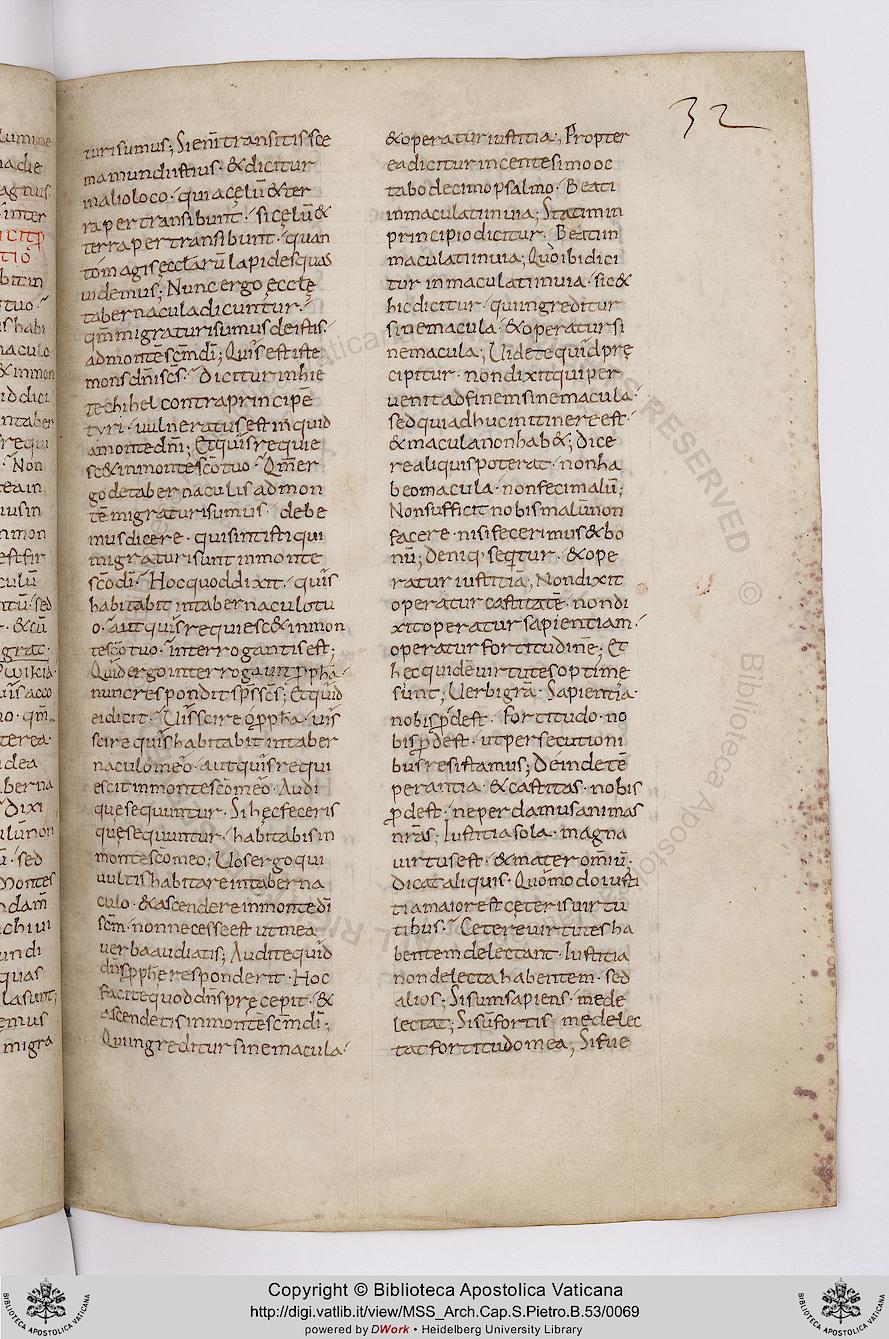 32
turi sumus; Si enī transit isſce
ma mundi istius · & dicitur
in alio loco · qui a cęlū & ter
ra pertransibunt · si cęlū &
terra pertransibunt · quan
tōm agis ęcclarū lapides quas
videmus; Nunc ergo ęcclę
tabernacula dicuntur ·
qm̄ migraturi sumus de istis ·
ad montē scm̄ dī; Quis est iste
mons dn̄i scs̄ · Dicitur in hie
techihel contra principē
tyri · vulneratus est inquid
a monte dn̄i; Et quis requie
sc& in monte scō tuo · Qm̄ er
go de tabernaculis ad mon
tē migraturi sumus · debe
mus dicere · qui sint isti qui
migraturi sunt in monte
scō dī · Hoc quod dixit · quis
habitabit in tabernaculo tu
o · aut quis requiesc& in mon
te scō tuo · interrogantis est;
Quid ergo interrogaunt ppħa ·
nunc respondit sps̄ scs̄; Et quid
ei dicit · Uis scire o ppħa · uis
scire quis habitabit in taber
naculo meo · aut quis requi
escit in monte scō meo · Audi
quę sequuntur · Si hęc feceris
quę sequuntur · habitabis in
monte scō meo; Uos ergo qui
vultis habitare in taberna
culo · & ascendere in monte dī
scm̄ · non necesse est ut mea
verba audiatis; Audite quid
dn̄s ppħę responderit · Hoc
facite quod dn̄s pręcepit · &
ascendetis in montē scm̄ dī;
Qui ingreditur sine macula ·
& operatur iustitia; Propter
ea dicitur in centesimo oc
tabo decimo psalmo · Beati
inmaculati in uia; Statim in
principio dicitur · Beati in
maculati in uia; Quō ibi dici
tur inmaculati in uia · sic &
hic dicitur · qui ingreditur
sine macula · & operatur si
ne macula; Uidete quid prę
cipitur · non dixit qui per
venit ad finem sine macula ·
sed qui adhuc in itinere est ·
& macula non hab&; Dice
re aliquis poterat · non ha
beo macula · non feci malū;
Non sufficit nobis malū non
facere · nisi fecerimus & bo
nū; Deniq · seqtur · & ope
ratur iustitiā; Non dixit
operatur castitatē · non di
xit operatur sapientiam ·
operatur fortitudinē; Et
hec quidē virtutes optime
sunt; Uerbi gra · Sapientia ·
nobis pdest · fortitudo · no
bis pdest · ut persecutioni
bus resistamus; Deinde tē
perantia · & castitas · nobis
pdest · ne perdamus animas
nrās; Iustitia sola · magna
virtus est · & mater omīū ·
Dicat aliquis · Quomodo iusti
tia maior est cęteris virtu
tibus · Cetere virtutes ha
bentem delectant · Iustitia
non delecta habentem · sed
alios; Si sum sapiens · me de
lectat; Si sū fortis · me delec
tat fortitudo mea; Si fue
Copyright © Biblioteca Apostolica Vaticana
http://digi.vatlib.it/view/MSS_Arch.Cap.S.Pietro.B.53/0069
powered by DWork • Heidelberg University Library